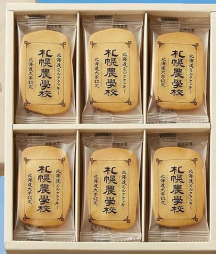 北海道ミルククッキー
札幌農學校
北海道大学認定
北海道ミルククッキー
札幌農學校
北海道大学認定
北海道ミルククッキー
札幌農學校
北海道大学認定
北海道ミルククッキー
札幌農學校
北海道大学認定
北海道ミルククッキー
札幌農學校
北海道大学認定
北海道ミルククッキー
札幌農學校
北海道大学認定